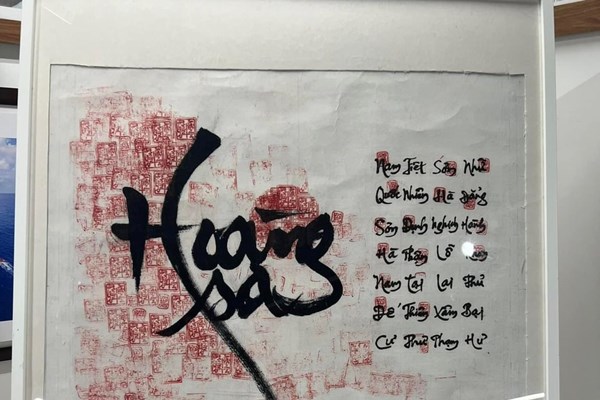 Hoàng
Sa
Nam Tiệt Nhữ
Quốc Nhiên Hà Đẳng
Sơn Định Nghịch Hành
Hà Phận Lỗ
Nam Tại Lai Thủ
Đế Thiên Xâm Bại
Cư Thư Phạm Hư